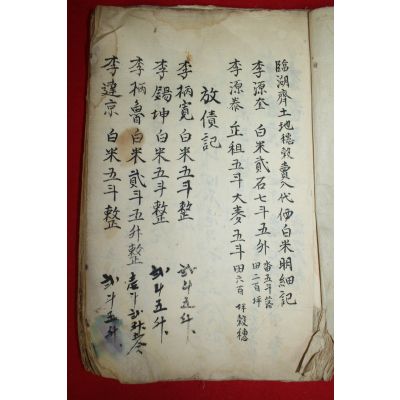 臨湖齊土地穗穀賣入代価白米明細記
李源奎 白米貳石七斗五升 畓五斗落 田二百坪
李源泰 正租五斗大麦五斗 田六百坪穀穗
放債記
李柄寬 白米五斗整 貳斗五升
李錫坤 白米五斗整 貳斗五升
李柄魯 白米貳斗五升整
李達京 白米五斗整 貳斗五升